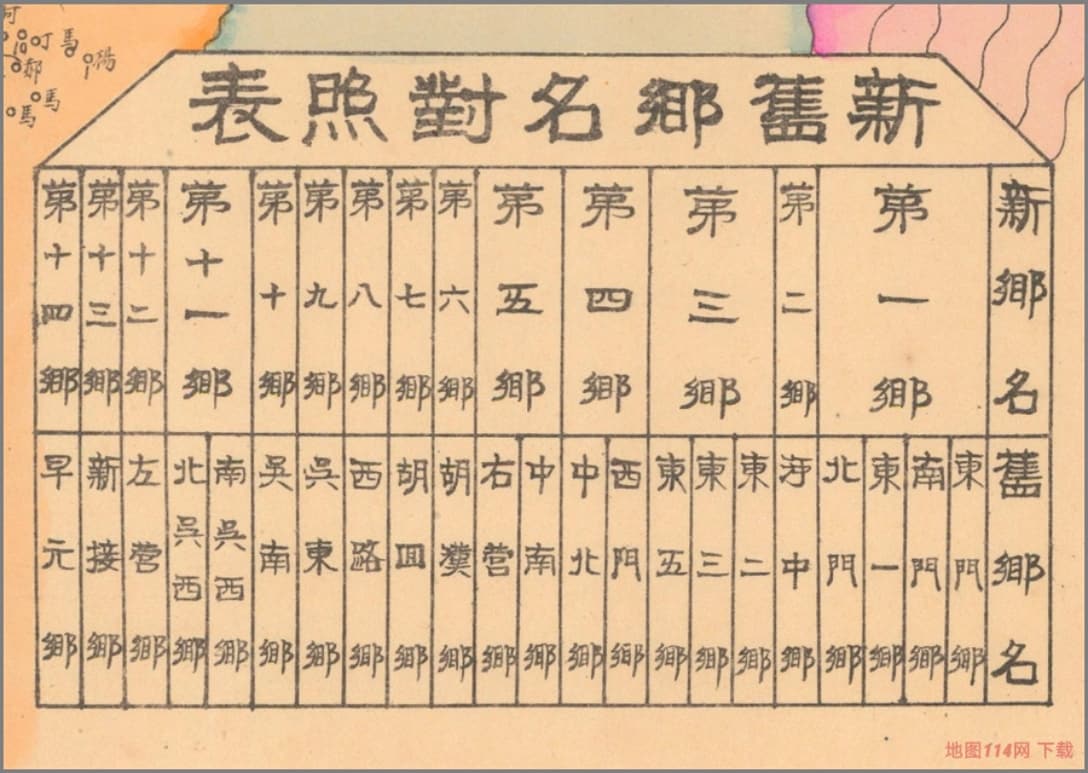 新舊鄉名對照表
新鄉名
第一鄉
第二鄉
第三鄉
第四鄉
第五鄉
第六鄉
第七鄉
第八鄉
第九鄉
第十鄉
第十一鄉
第十二鄉
第十三鄉
第十四鄉
舊鄉名
東門鄉
南門鄉
東一鄉
北門鄉
中鄉
東二鄉
東三鄉
東五鄉
西門鄉
中北鄉
中南鄉
右營鄉
胡鄉
胡回鄉
西路鄉
吳東鄉
吳南鄉
南吳西鄉
北吳西鄉
左營鄉
新接鄉
早元鄉
馬
楊
馬
馬
地图114网 下载